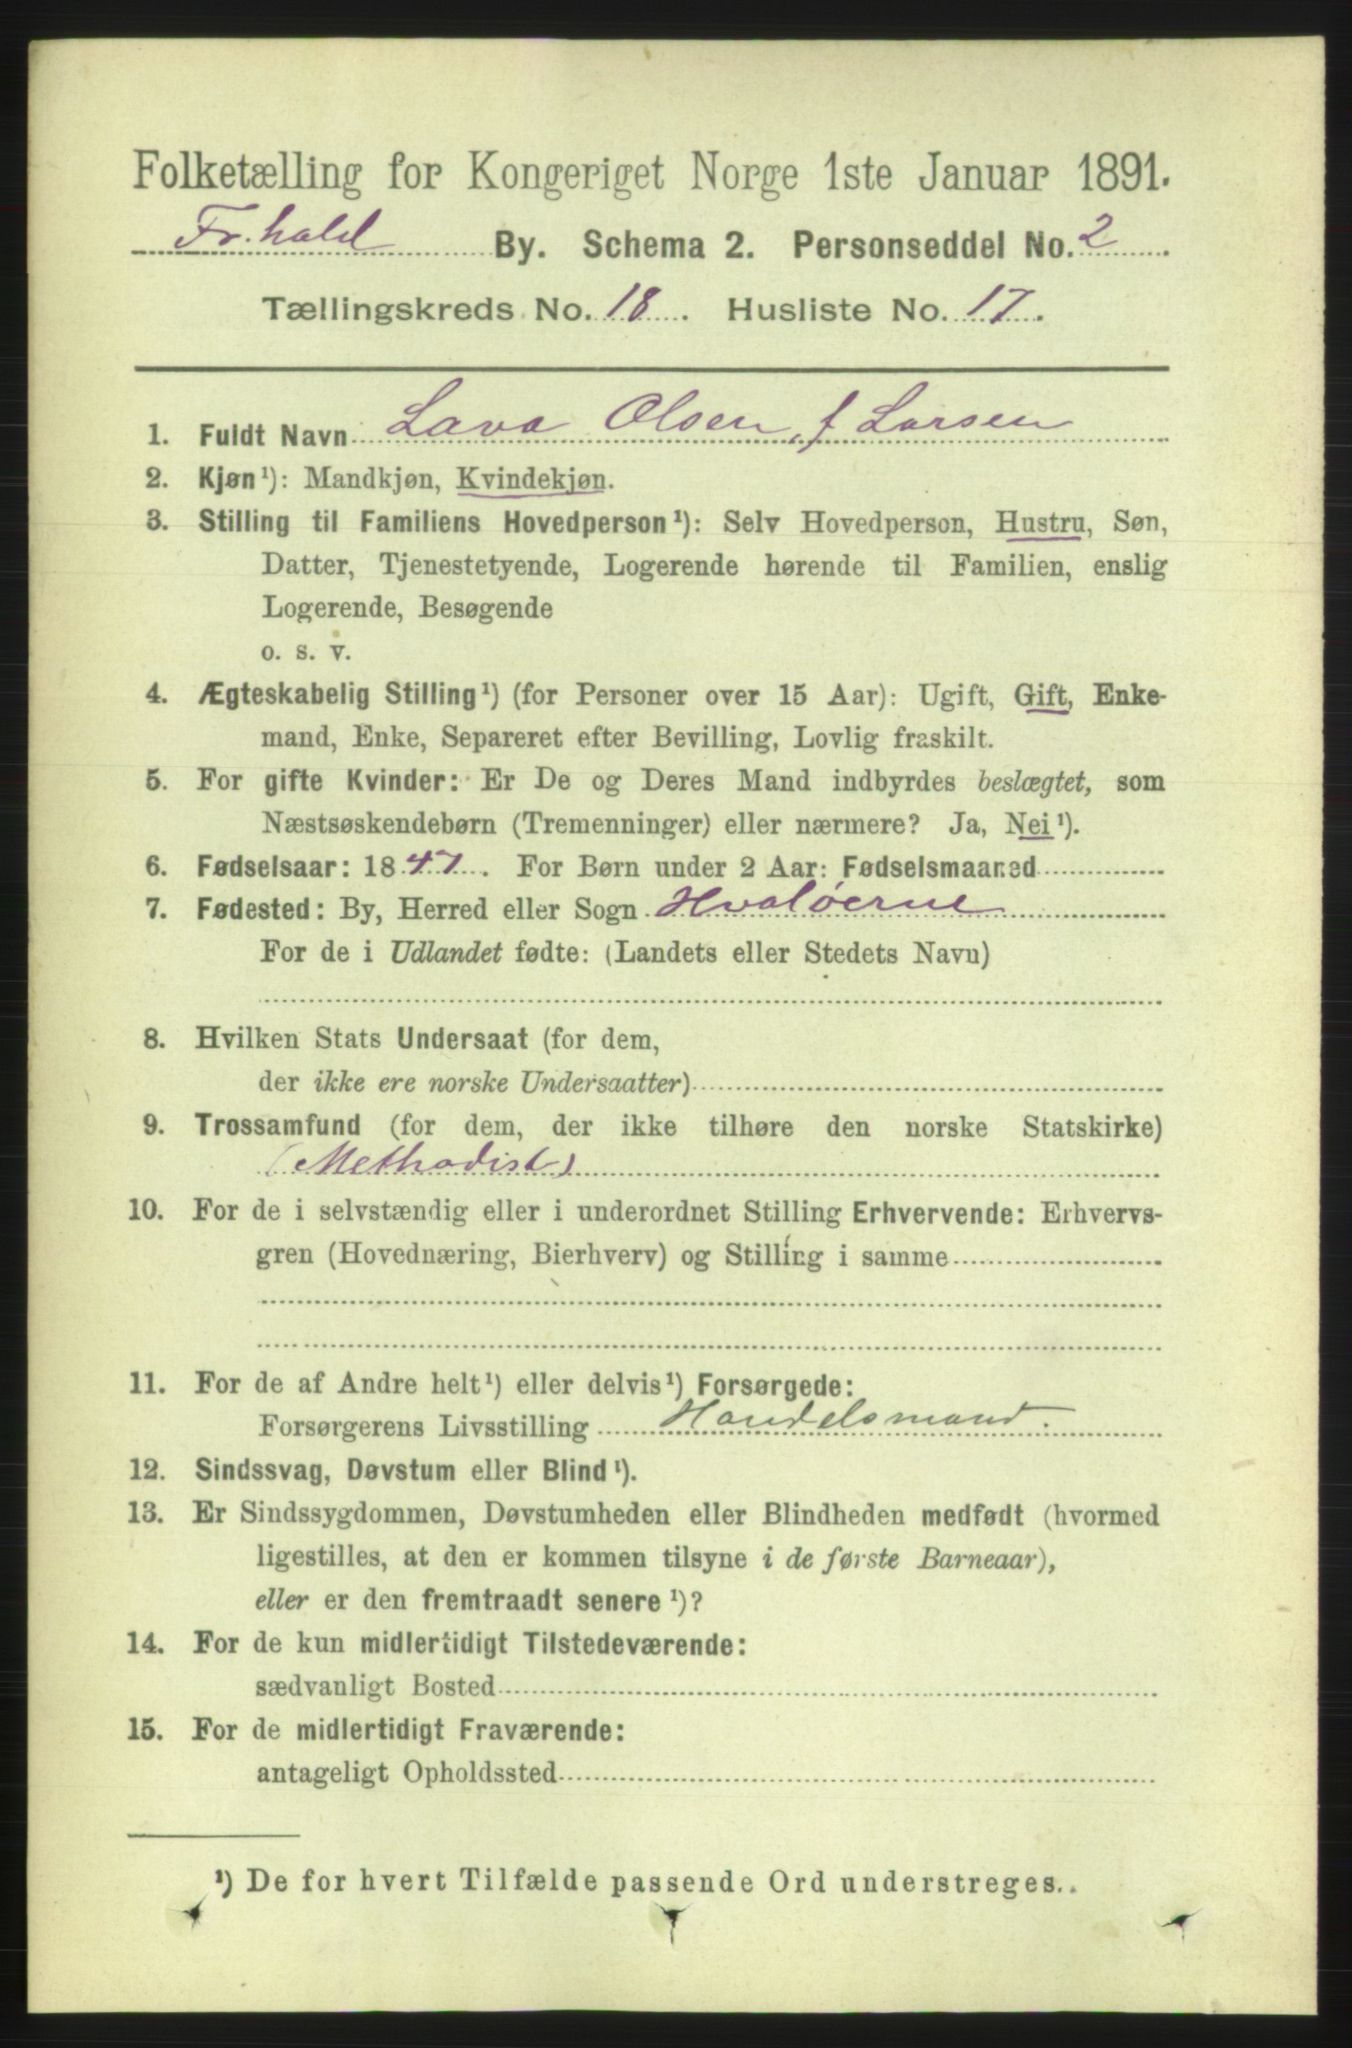 Folketælling for Kongeriget Norge 1ste Januar 1891.
Fr.hald By. Schema 2. Personseddel No. 2
Tællingskreds No. 18. Husliste No. 17.
1. Fuldt Navn Lava Olsen, f Larsen
2. Kjøn¹): Mandkjøn, Kvindekjøn.
3. Stilling til Familiens Hovedperson¹): Selv Hovedperson, Hustru, Søn,
Datter, Tjenestetyende, Logerende hørende til Familien, enslig
Logerende, Besøgende
o. s. v.
4. Ægteskabelig Stilling¹) (for Personer over 15 Aar): Ugift, Gift, Enke-
mand, Enke, Separeret efter Bevilling, Lovlig fraskilt.
5. For gifte Kvinder: Er De og Deres Mand indbyrdes beslægtet, som
Næstsøskendebørn (Tremenninger) eller nærmere? Ja, Nei¹).
6. Fødselsaar: 1847. For Børn under 2 Aar: Fødselsmaaned
7. Fødested: By, Herred eller Sogn Hvaløerne
For de i Udlandet fødte: (Landets eller Stedets Navn)
8. Hvilken Stats Undersaat (for dem,
der ikke ere norske Undersaatter)
9. Trossamfund (for dem, der ikke tilhøre den norske Statskirke)
(Methodist)
10. For de i selvstændig eller i underordnet Stilling Erhvervende: Erhvervs-
gren (Hovednæring, Bierhverv) og Stilling i samme
11. For de af Andre helt¹) eller delvis¹) Forsørgede:
Forsørgerens Livsstilling Handelsmand.
12. Sindssvag, Døvstum eller Blind¹).
13. Er Sindssygdommen, Døvstumheden eller Blindheden medfødt (hvormed
ligestilles, at den er kommen tilsyne i de første Barneaar),
eller er den fremtraadt senere¹)?
14. For de kun midlertidigt Tilstedeværende:
sædvanligt Bosted
15. For de midlertidigt Fraværende:
antageligt Opholdssted
¹) De for hvert Tilfælde passende Ord understreges.